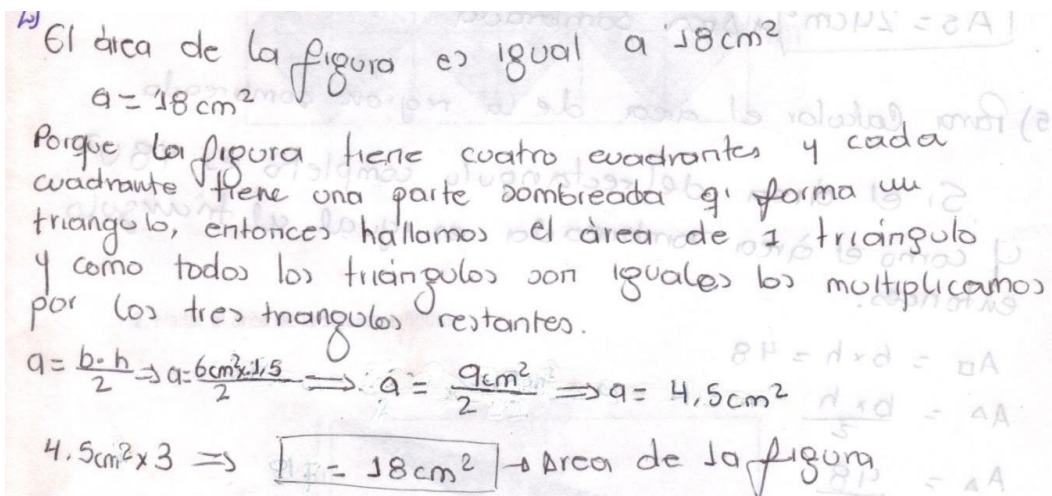 b)
El área de la figura es igual a 18 cm²
a = 18 cm²
Porque la figura tiene cuatro cuadrantes y cada
cuadrante tiene una parte sombreada q' forma un
triangulo, entonces hallamos el área de 1 triángulo
y como todos los triángulos son iguales los multiplicamos
por los tres triangulos restantes.
a = b·h/2 ⇒ a = 6cm²x1,5/2 ⟹ a = 9cm²/2 ⟹ a = 4,5cm²
4.5cm² x 3 ⇒ = 18cm² → Area de la figura